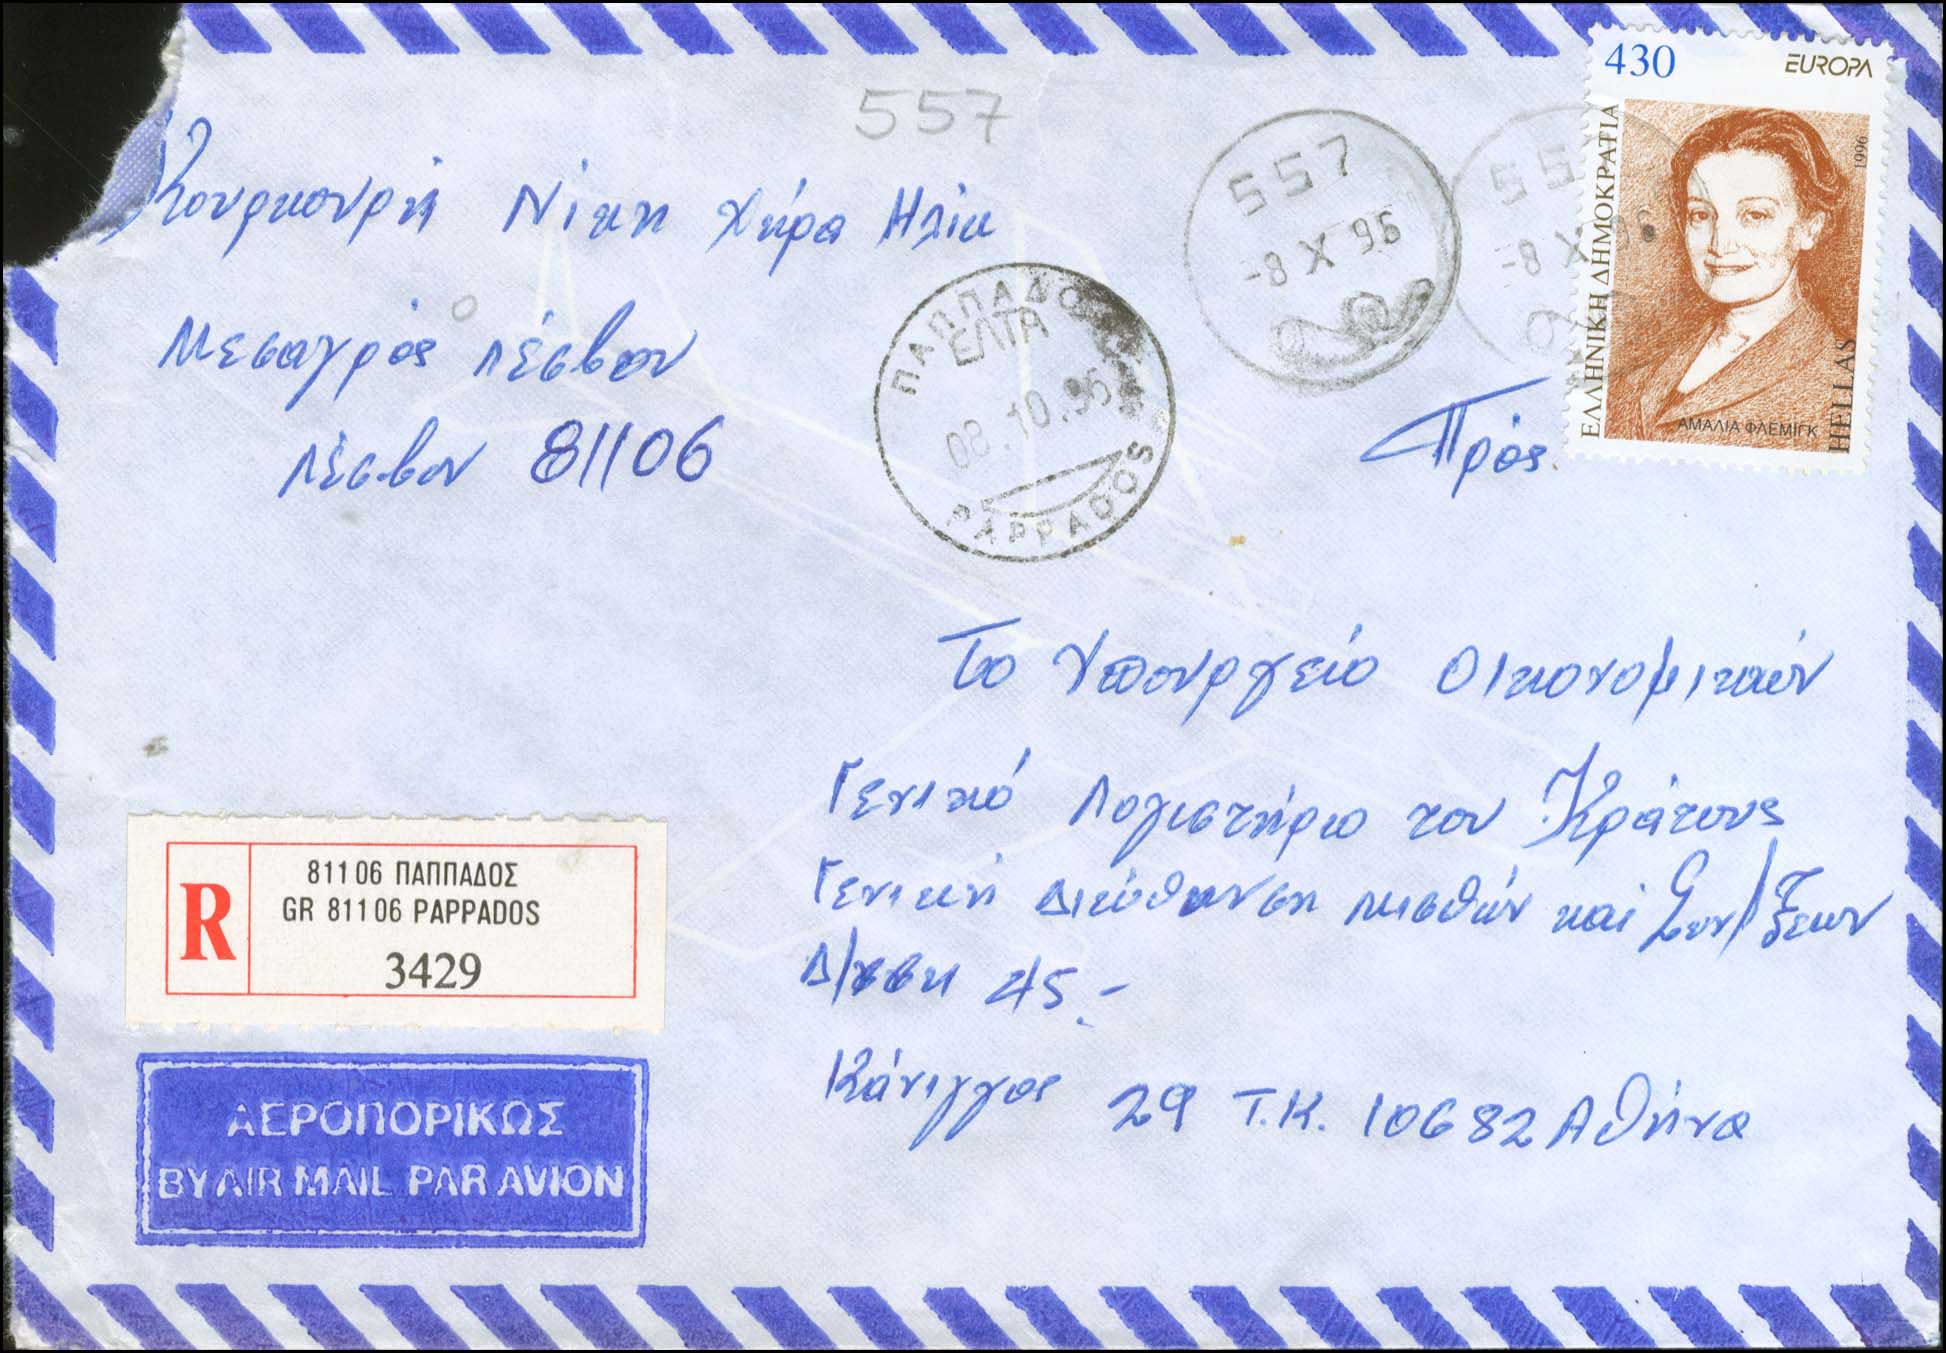 430 EUROPA
ΕΛΛΗΝΙΚΗ ΔΗΜΟΚΡΑΤΙΑ
1996
ΑΜΑΛΙΑ ΦΛΕΜΙΓΚ
HELLAS
557
557
-8 X 96
557
-8 X 96
Κουρκουρή Νίκη χήρα Ηλία
Μεσαγρός Λέσβου
Λέσβου 81106
ΠΑΠΠΑΔΟΣ
ΕΛΤΑ
08.10.96
PAPPADOS
Πρός
Το Υπουργείο Οικονομικών
Γενικό Λογιστήριο του Κράτους
Γενική Διεύθυνση Μισθών και Συν/ξεων
Δ/νση 45.-
Κάνιγγος 29 Τ.Κ. 10682 Αθήνα
R
811 06 ΠΑΠΠΑΔΟΣ
GR 811 06 PAPPADOS
3429
ΑΕΡΟΠΟΡΙΚΩΣ
BY AIR MAIL PAR AVION